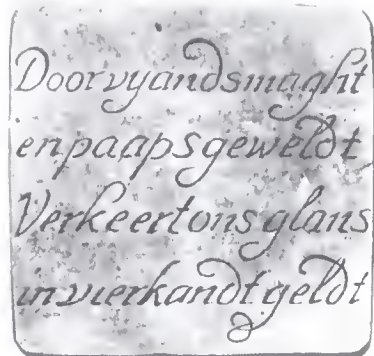 Door vyands maght
en paaps geweldt
Verkeert ons glans
in vierkandt geldt